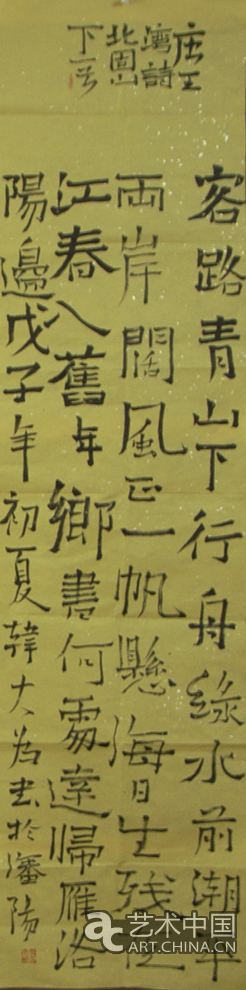 唐王
灣詩
北固山
下一首
客路青山下行舟綠水前潮平
両岸闊風正一帆懸海日生残夜
江春入舊年鄉書何處達歸雁洛
陽邊戊子年初夏韓大为书於瀋陽
ac 艺术中国
ART.CHINA.CN